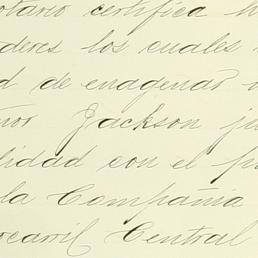 otario certifica h
deres los cuales
d de enagenar
ñor Jackson ju
lidad con el p
la Compañia
rocarril Central